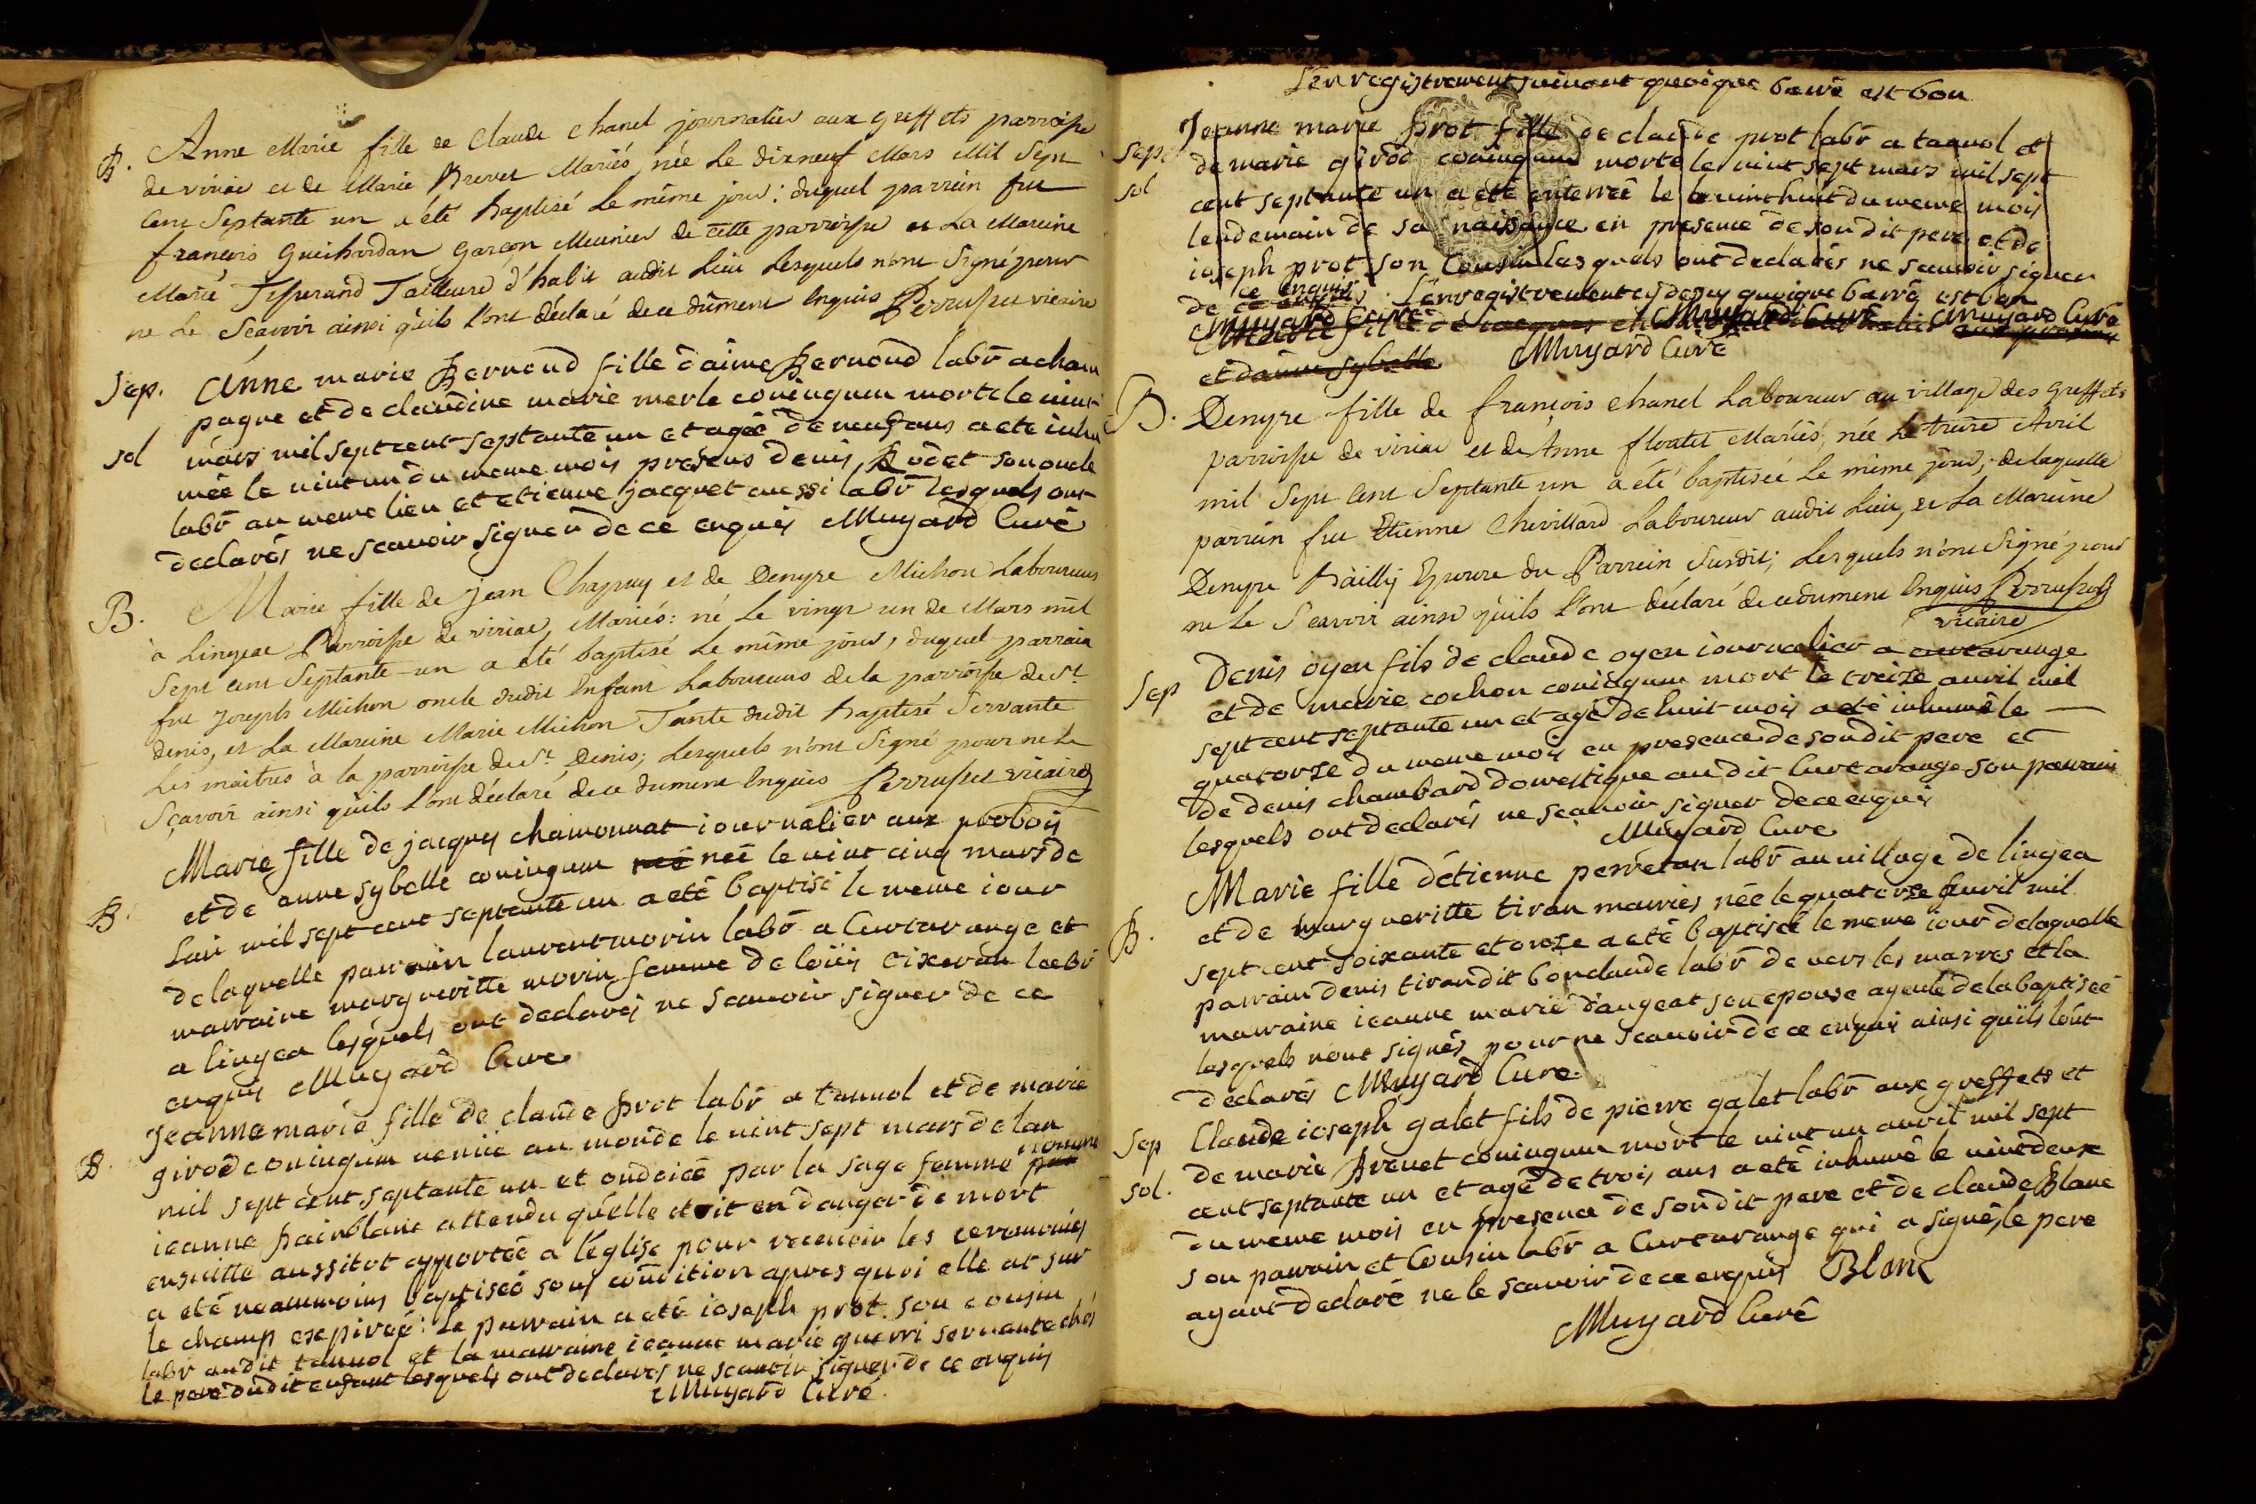 Anne Marie fille de Claude Chanel journalier aux greffets parroisse
B. de viriac et de Marie Brevet Mariés née Le dixneuf Mars Mil Sept
Cent Septante un a été baptisé Le même jour: duquel parrein fut
françois Guichardan garçon Meunier de cette parroisse et La Mareine
Marie Tisserand Tailleure d'habit audit Lieu Lesquels n'ont Signé pour
ne Le Scavoir ainsi quils l'ont déclaré de ce dûment Enquis Perrusset vicaire
Sep. Anne marie Bernoud fille daime Bernoud labr a cham
pagne et de claudine marie merle coniugum morte le vint
sol mars mil sept cent septante un et agée de neuf ans a ete inhu
mée le vint un du meme mois presens denis Rodet son oncle
labr au meme lieu et etienne jacquet aussi labr lesquels ont
declarés ne scavoir signer de ce enquis Muyard Curé
B. Marie fille de Jean Chapuy et de Denyse Michon Laboureurs
à Lingeat Parroisse de viriac Mariés: né Le vingt un de Mars mil
Sept cent Septante-un a été baptisé Le même jour, duquel parrain
fut Joseph Michon oncle dudit Enfant Laboureur de la parroisse de St.
denis, et La Mareine Marie Michon Tante dudit baptisé Servante
Les maitres à la parroisse de St. Denis; Lesquels n'ont Signé pour ne Le
Sçavoir ainsi quils l'ont déclaré de ce dument Enquis Perrusset vicaire
Marie fille de jacques chamonnat iournalier aux probois
B. et de anne sybelle coniugum née née le vint cinq mars de
lan mil sept cent septante un a eté baptisé le meme iour
de laquelle parrain laurent morin labr a Curtarange et
marraine margueritte morin femme de loüis cixeran labr
a lingea lesquels ont declarés ne scavoir signer de ce
enquis Muyard Cure
Jeanne marie fille de claude prot labr a tannol et de marie
B. girod coniugum venüe au monde le vint sept mars de lan
mil sept cent septante un et ondoiée par la sage femme nommé
ieanne painblanc attendu quelle etoit en danger de mort
ensuitte aussitot apportée a l'église pour recevoir les ceremonies
a eté neammoins baptisée sous condition apres quoi elle at sur
le champ expirée: Le parrain a eté ioseph prot son cousin
labr audit tannol et la marraine ieanne marie guerri servante chés
le pere dudit enfant lesquels ont declarés ne scavoir signer de ce enquis
Muyard Curé
L'enregistrement suivant quoique barré est bon
Jeanne marie prot fille de claude prot labr a tannol et
Sep. de marie girod coniugum morte le vint sept mars mil sept
sol cent septante un a eté enterrée le vint huit du meme mois
lendemain de sa naissance en presence de son dit pere et de
ioseph prot son Cousin lesquels ont declarés ne scavoir signer
de ce enquis. L'enregistrement cy dessus quoique barré est bon
Muyard Curé Muyard Curé
et danne sybelle Muyard Curé
B. Denyse fille de françois Chanel Laboureur au village des Greffets
parroisse de viriac et de Anne floutet Mariés, née Le treize Avril
mil Sept Cent Septante un a été baptisée Le même jour; de laquelle
parrain fut Etienne Chevillard Laboureur audit Lieu, et La Mareine
Denyse Bailly Epouse du Parrein Susdit; Lesquels n'ont Signé pour
ne Le Scavoir ainsi quils l'ont déclaré de ce dument Enquis Perrusset
vicaire
Sep Denis oyen fils de claude oyen iournalier a curtarange
et de marie cochon coniugum mort le treize avril mil
sept cent septante un et agé de huit mois a eté inhumé le
quatorze du meme mois en presence de son dit pere et
de denis chambard domestique au dit Curtarange son parrain
lesquels ont declarés ne scavoir signer de ce enquis
Muyard Cure
Marie fille détienne perretan labr au village de lingea
B. et de margueritte tiran mariés née le quatorze avril mil
sept cent soixante et onze a eté baptisée le meme iour de laquelle
parrain denis tiran dit bonclaude labr de vers les marres et la
marraine ieanne marie dangeat son epouse ayeule de la baptisée
lesquels n'ont signés pour ne scavoir de ce enquis ainsi quils lont
declarés Muyard Cure
Sep Claude ioseph galet fils de pierre galet labr aux greffets et
sol. de marie Brevet coniugum mort le vint un avril mil sept
cent septante un et agé de trois ans a eté inhumé le vint deux
du meme mois en presence de son dit pere et de claude Blanc
son parrain et Cousin labr a Curtarange qui a signé, le pere
ayant declaré ne le scavoir de ce enquis Blanc
Muyard Curé